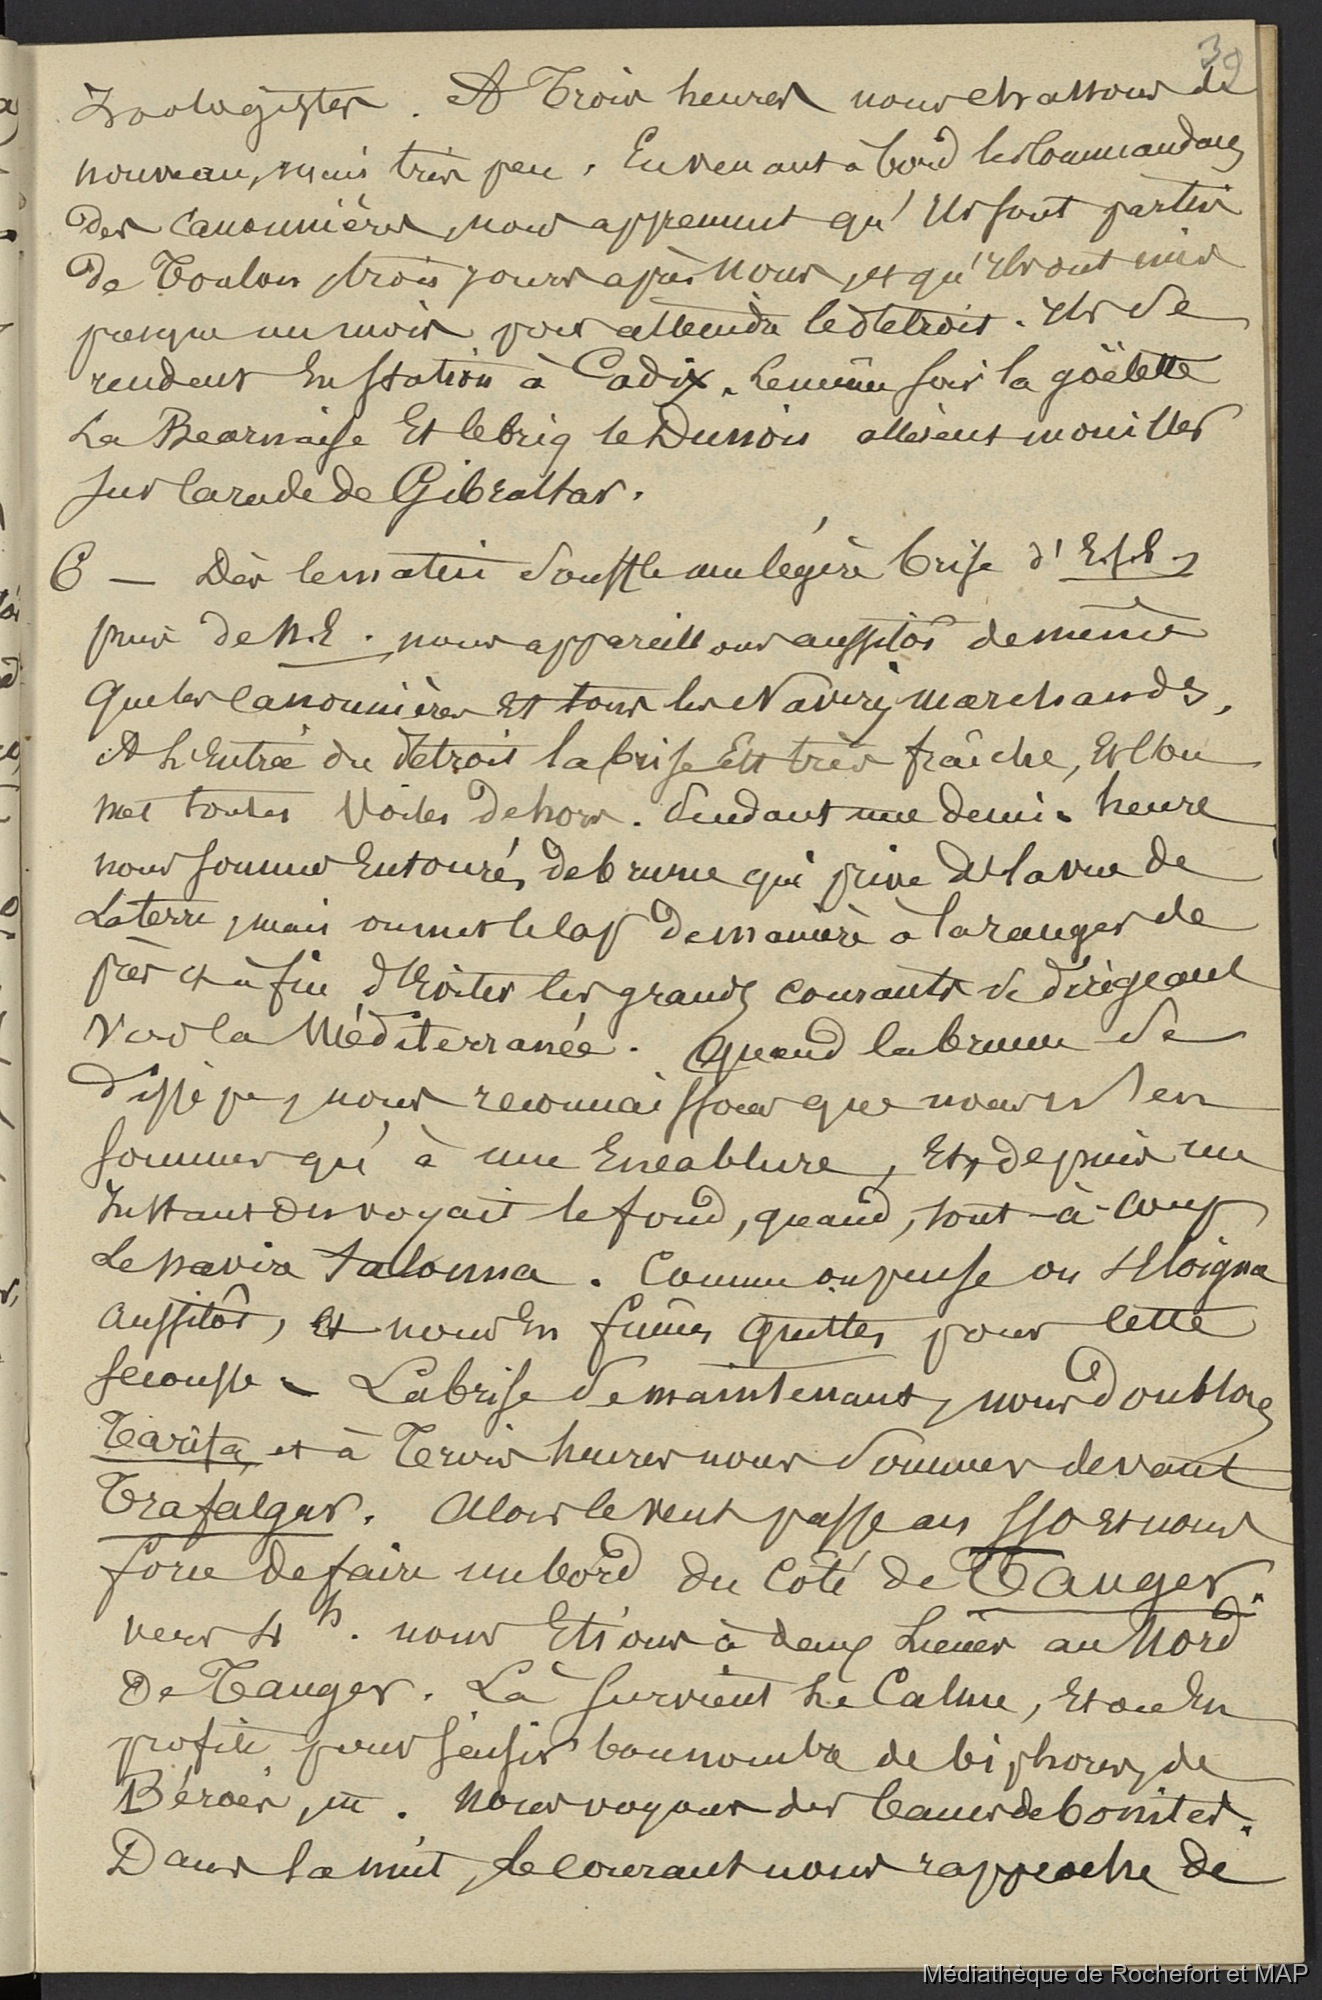 39
Zoologistes. A Trois heures nous chassons de
nouveau, mais très peu. En venant à bord les Commandans
des Canonnières, nous apprennent qu'Ils sont partis
de Toulon, trois jours après Nous, et qu'Ils ont mis
presque un mois pour atteindre le détroit. Ils se
rendent En station à Cadix. Le même soir la goëlette
La Bearnaise Et le brig le Dunois allèrent mouiller
sur la rade de Gibraltar.
6 — Dès le matin souffle une légère brise d'E.S.E,
puis de N.E. nous appareillons aussitôt de même
que les Canonnières Et tous les Navires marchands.
A l'Entrée du détroit la brise Est très fraîche, Et l'on
met toutes Voiles dehors. Pendant une demi-heure
nous sommes Entourés de brume qui prive de la vue de
La terre, mais on met le Cap de manière à la ranger de
près et afin d'Eviter les grands courants se dirigeant
Vers la Méditerranée. Quand la brume se
dissipe, nous reconnaissons que nous n'en
sommes qu'à une Encablure, Et, depuis un
Instant on voyait le fond, quand, tout-à-coup
Le Navire talonna. Comme on pense on s'Eloigna
aussitôt, et nous En fûmes quittes pour cette
secousse. La brise se maintenant, nous doublons
Tarifa, et à Trois heures nous sommes devant
Trafalgar. Alors le vent passe au SSO et nous
force de faire un bord du Côté de Tanger.
vers 4 h. nous Etions à deux Lieues au Nord
de Tanger. Là survient Le Calme, Et on En
profite pour saisir bon nombre de biphores, de
Béroés, . Nous voyons des bancs de bonites.
Dans la nuit, le courant nous rapproche de
Médiathèque de Rochefort et MAP